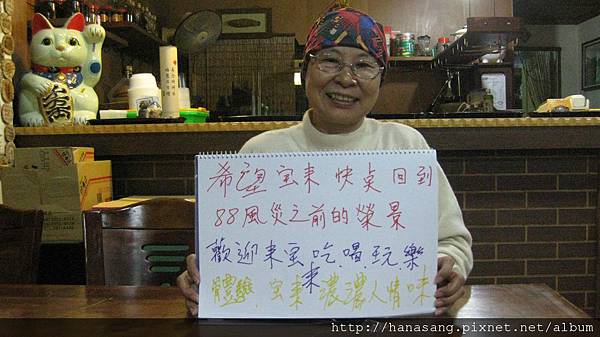 希望宝来快奌回到
88風災之前的榮景
歡迎来宝来吃.喝.玩.樂
體驗宝来濃濃人情味
http://hanasang.pixnet.net/album